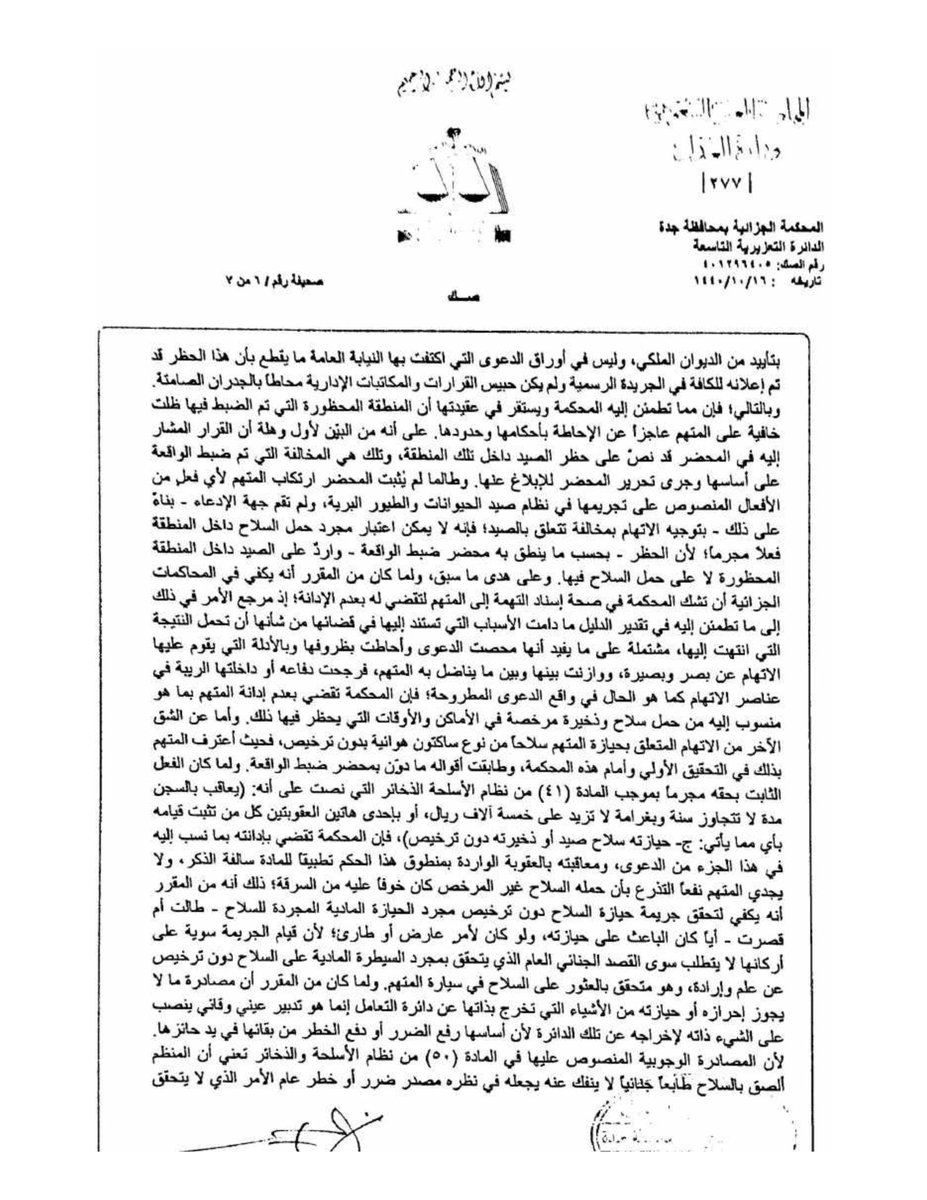 بسم الله الرحمن الرحيم
وزارة العدل
|٢٧٧|
المحكمة الجزائية بمحافظة جدة
الدائرة التعزيرية التاسعة
رقم الصك: ٤٠١٢٩٦٤٠٥
تاريخه : ١٤٤٠/١٠/١٦
صحيفة رقم / ٦ من ٧
صك
بتأييد من الديوان الملكي، وليس في أوراق الدعوى التي اكتفت بها النيابة العامة ما يقطع بأن هذا الحظر قد
تم إعلانه للكافة في الجريدة الرسمية ولم يكن حبيس القرارات والمكاتبات الإدارية محاطاً بالجدران الصامتة.
وبالتالي؛ فإن مما تطمئن إليه المحكمة ويستقر في عقيدتها أن المنطقة المحظورة التي تم الضبط فيها ظلت
خافية على المتهم عاجزاً عن الإحاطة بأحكامها وحدودها. على أنه من البيّن لأول وهلة أن القرار المشار
إليه في المحضر قد نصّ على حظر الصيد داخل تلك المنطقة، وتلك هي المخالفة التي تم ضبط الواقعة
على أساسها وجرى تحرير المحضر للإبلاغ عنها. وطالما لم يُثبت المحضر ارتكاب المتهم لأي فعل من
الأفعال المنصوص على تجريمها في نظام صيد الحيوانات والطيور البرية، ولم تقم جهة الإدعاء - بناءً
على ذلك - بتوجيه الاتهام بمخالفة تتعلق بالصيد؛ فإنه لا يمكن اعتبار مجرد حمل السلاح داخل المنطقة
فعلاً مجرماً؛ لأن الحظر - بحسب ما ينطق به محضر ضبط الواقعة - واردٌ على الصيد داخل المنطقة
المحظورة لا على حمل السلاح فيها. وعلى هدى ما سبق، ولما كان من المقرر أنه يكفي في المحاكمات
الجزائية أن تشك المحكمة في صحة إسناد التهمة إلى المتهم لتقضي له بعدم الإدانة؛ إذ مرجع الأمر في ذلك
إلى ما تطمئن إليه في تقدير الدليل ما دامت الأسباب التي تستند إليها في قضائها من شأنها أن تحمل النتيجة
التي انتهت إليها، مشتملة على ما يفيد أنها محصت الدعوى وأحاطت بظروفها وبالأدلة التي يقوم عليها
الاتهام عن بصر وبصيرة، ووازنت بينها وبين ما يناضل به المتهم، فرجحت دفاعه أو داخلتها الريبة في
عناصر الاتهام كما هو الحال في واقع الدعوى المطروحة؛ فإن المحكمة تقضي بعدم إدانة المتهم بما هو
منسوب إليه من حمل سلاح وذخيرة مرخصة في الأماكن والأوقات التي يحظر فيها ذلك. وأما عن الشق
الآخر من الاتهام المتعلق بحيازة المتهم سلاحاً من نوع ساكتون هوائية بدون ترخيص، فحيث أعترف المتهم
بذلك في التحقيق الأولي وأمام هذه المحكمة، وطابقت أقواله ما دوّن بمحضر ضبط الواقعة. ولما كان الفعل
الثابت بحقه مجرماً بموجب المادة (٤١) من نظام الأسلحة الذخائر التي نصت على أنه: (يعاقب بالسجن
مدة لا تتجاوز سنة وبغرامة لا تزيد على خمسة آلاف ريال، أو بإحدى هاتين العقوبتين كل من تثبت قيامه
بأي مما يأتي: ج- حيازته سلاح صيد أو ذخيرته دون ترخيص)، فإن المحكمة تقضي بإدانته بما نسب إليه
في هذا الجزء من الدعوى، ومعاقبته بالعقوبة الواردة بمنطوق هذا الحكم تطبيقاً للمادة سالفة الذكر، ولا
يجدي المتهم نفعاً التذرع بأن حمله السلاح غير المرخص كان خوفاً عليه من السرقة؛ ذلك أنه من المقرر
أنه يكفي لتحقق جريمة حيازة السلاح دون ترخيص مجرد الحيازة المادية المجردة للسلاح - طالت أم
قصرت - أياً كان الباعث على حيازته، ولو كان لأمر عارض أو طارئ؛ لأن قيام الجريمة سوية على
أركانها لا يتطلب سوى القصد الجنائي العام الذي يتحقق بمجرد السيطرة المادية على السلاح دون ترخيص
عن علم وإرادة، وهو متحقق بالعثور على السلاح في سيارة المتهم. ولما كان من المقرر أن مصادرة ما لا
يجوز إحرازه أو حيازته من الأشياء التي تخرج بذاتها عن دائرة التعامل إنما هو تدبير عيني وقائي ينصب
على الشيء ذاته لإخراجه عن تلك الدائرة لأن أساسها رفع الضرر أو دفع الخطر من بقائها في يد حائزها.
لأن المصادرة الوجوبية المنصوص عليها في المادة (٥٠) من نظام الأسلحة والذخائر تعني أن المنظم
ألصق بالسلاح طابعاً جنائياً لا ينفك عنه يجعله في نظره مصدر ضرر أو خطر عام الأمر الذي لا يتحقق